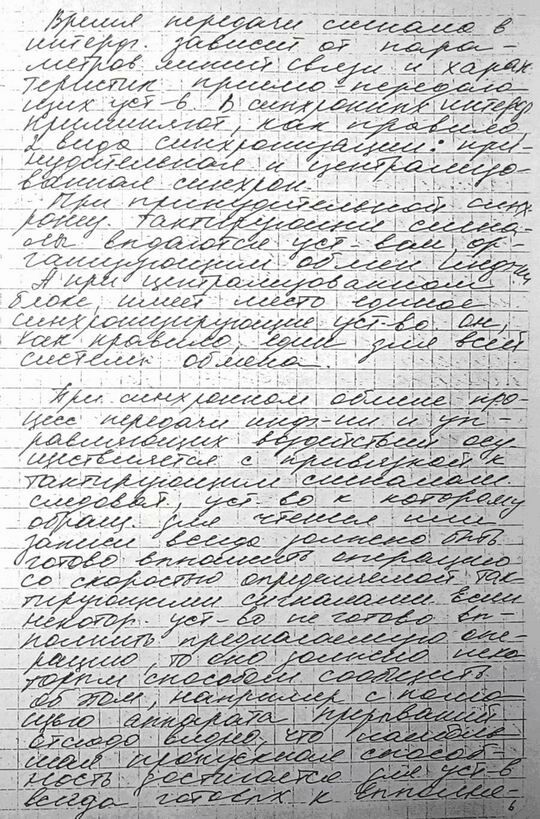 Время передачи сигнала в
интерф. зависит от пара-
метров линий связи и харак
теристик приемо-передаю-
щих уст-в. В синхронных интерф
применяют, как правило,
2 вида синхронизации: при-
нудительная и централизо-
ванная синхрон.
При принудительной синх-
рониз. тактирующие сигна-
лы выдаются уст-вом, ор-
ганизующим обмен
А при централизованном
блоке, имеет место единое
синхронизирующие уст-во. Он,
как правило, един для всей
системы обмена.
При синхронном обмене про-
цесс передачи инф-ии и уп-
равляющих воздействий осу
ществляется с привязкой к
тактирующим сигналам
следоват., уст-во к которому
обращ. для чтения или
записи всегда должно быть
готово выполнить операцию
со скоростью определяемой так-
тирующими сигналами. Если
некотор. уст-во не готово вы-
полнить предлагаемую опе-
рацию, то оно должно неко-
торым способом сообщить
об том, например с помо-
щью аппарата прерываний
отсюда видно, что наиболь
шая пропускная способ-
ность достигается для уст-в
всегда готовых к выполне-
6